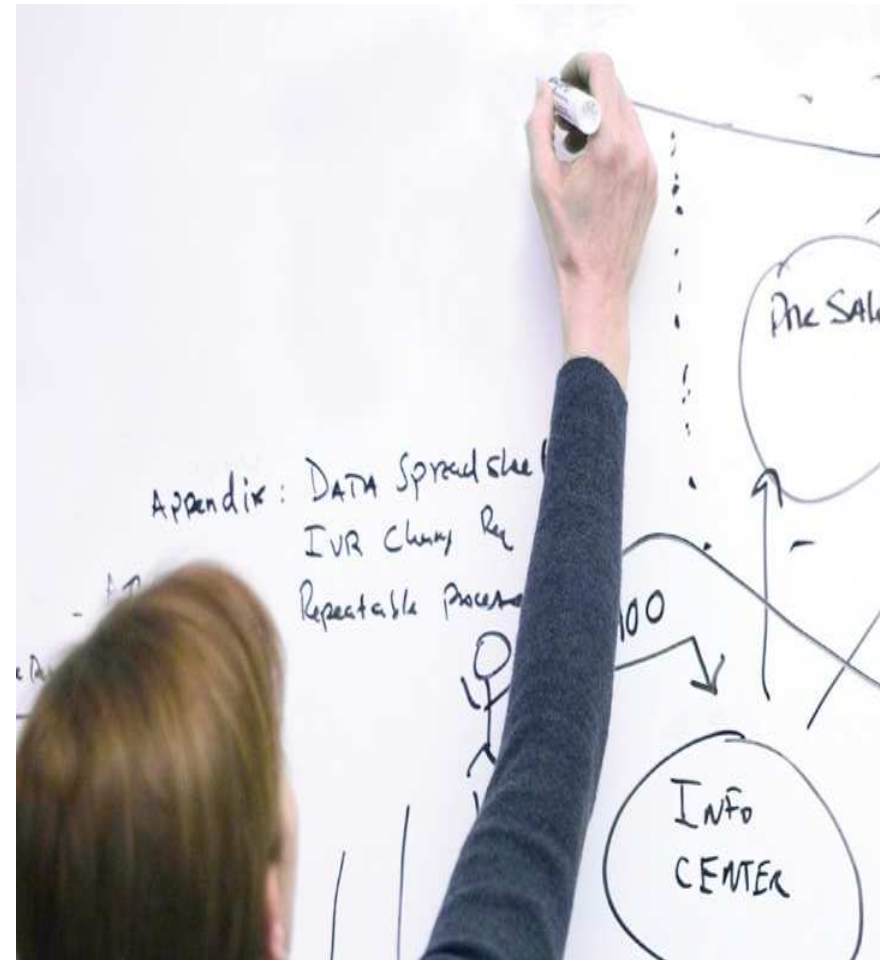 Pre Sale
Appendix: DATA Spreadshee
IVR
Repeatable Process
100
INFO
CENTER